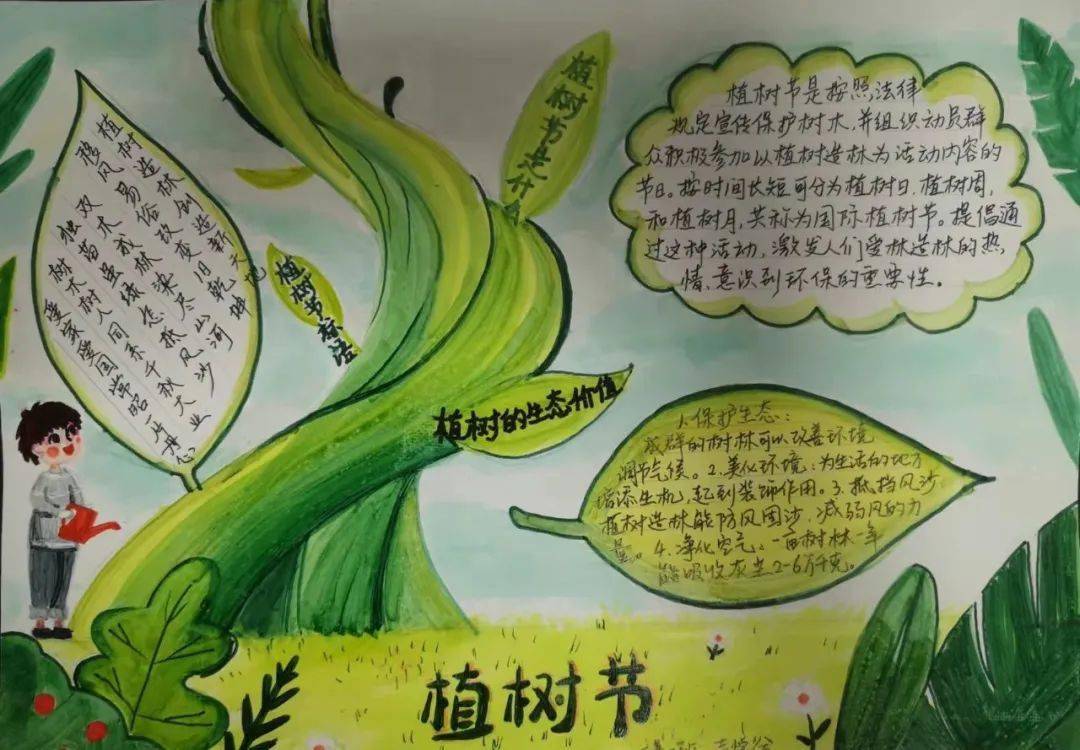 植树造林创造新天地
移风易俗改变旧乾坤
双木成林染尽山河
独苗虽续您抵风沙
树木树人同系千秋大业
爱家爱国常昭一片丹心
植树节标语
植树节是什么
植树节是按照法律
规定宣传保护树木,并组织动员群
众积极参加以植树造林为活动内容的
节日。按时间长短可分为植树日、植树周,
和植树月,共称为国际植树节。提倡通
过这种活动,激发人们爱林造林的热
情、意识到环保的重要性。
植树的生态价值
1.保护生态:
成群的树林可以改善环境
调节气候。2.美化环境:为生活的地方
增添生机,起到装饰作用。3.抵挡风沙
植树造林能防风固沙,减弱风的力
量。4.净化空气:一亩树林一年
能吸收灰尘2-6万千克。
植树节